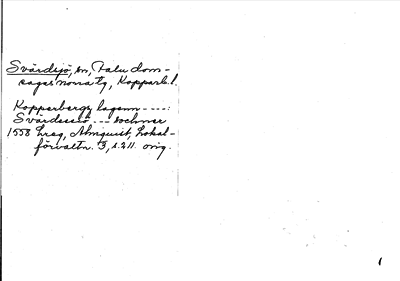 Svärdsjö, sn, Falu dom-
sagas norra tg, Kopparb. l.
Kopparbergz lagenn ----:
Svärdessiö --- sochner
1558 Lreg, Almquist, Lokal-
förvaltn. 3, s. 211. orig.
1